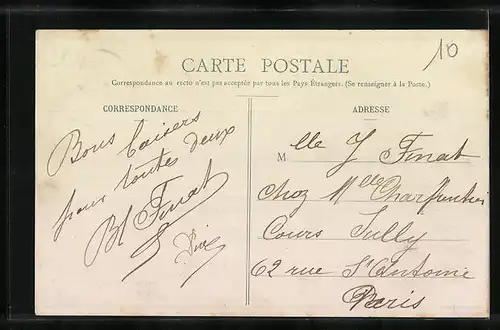 10
CARTE POSTALE
Correspondance au recto n'est pas acceptée par tous les Pays Étrangers. (Se renseigner à la Poste.)
CORRESPONDANCE
Bons baisers
pour toutes deux
Bl Finat
ADRESSE
Mlle J Finat
chez Mlle Charpentier
Cours Sully
62 rue St Antoine
Paris